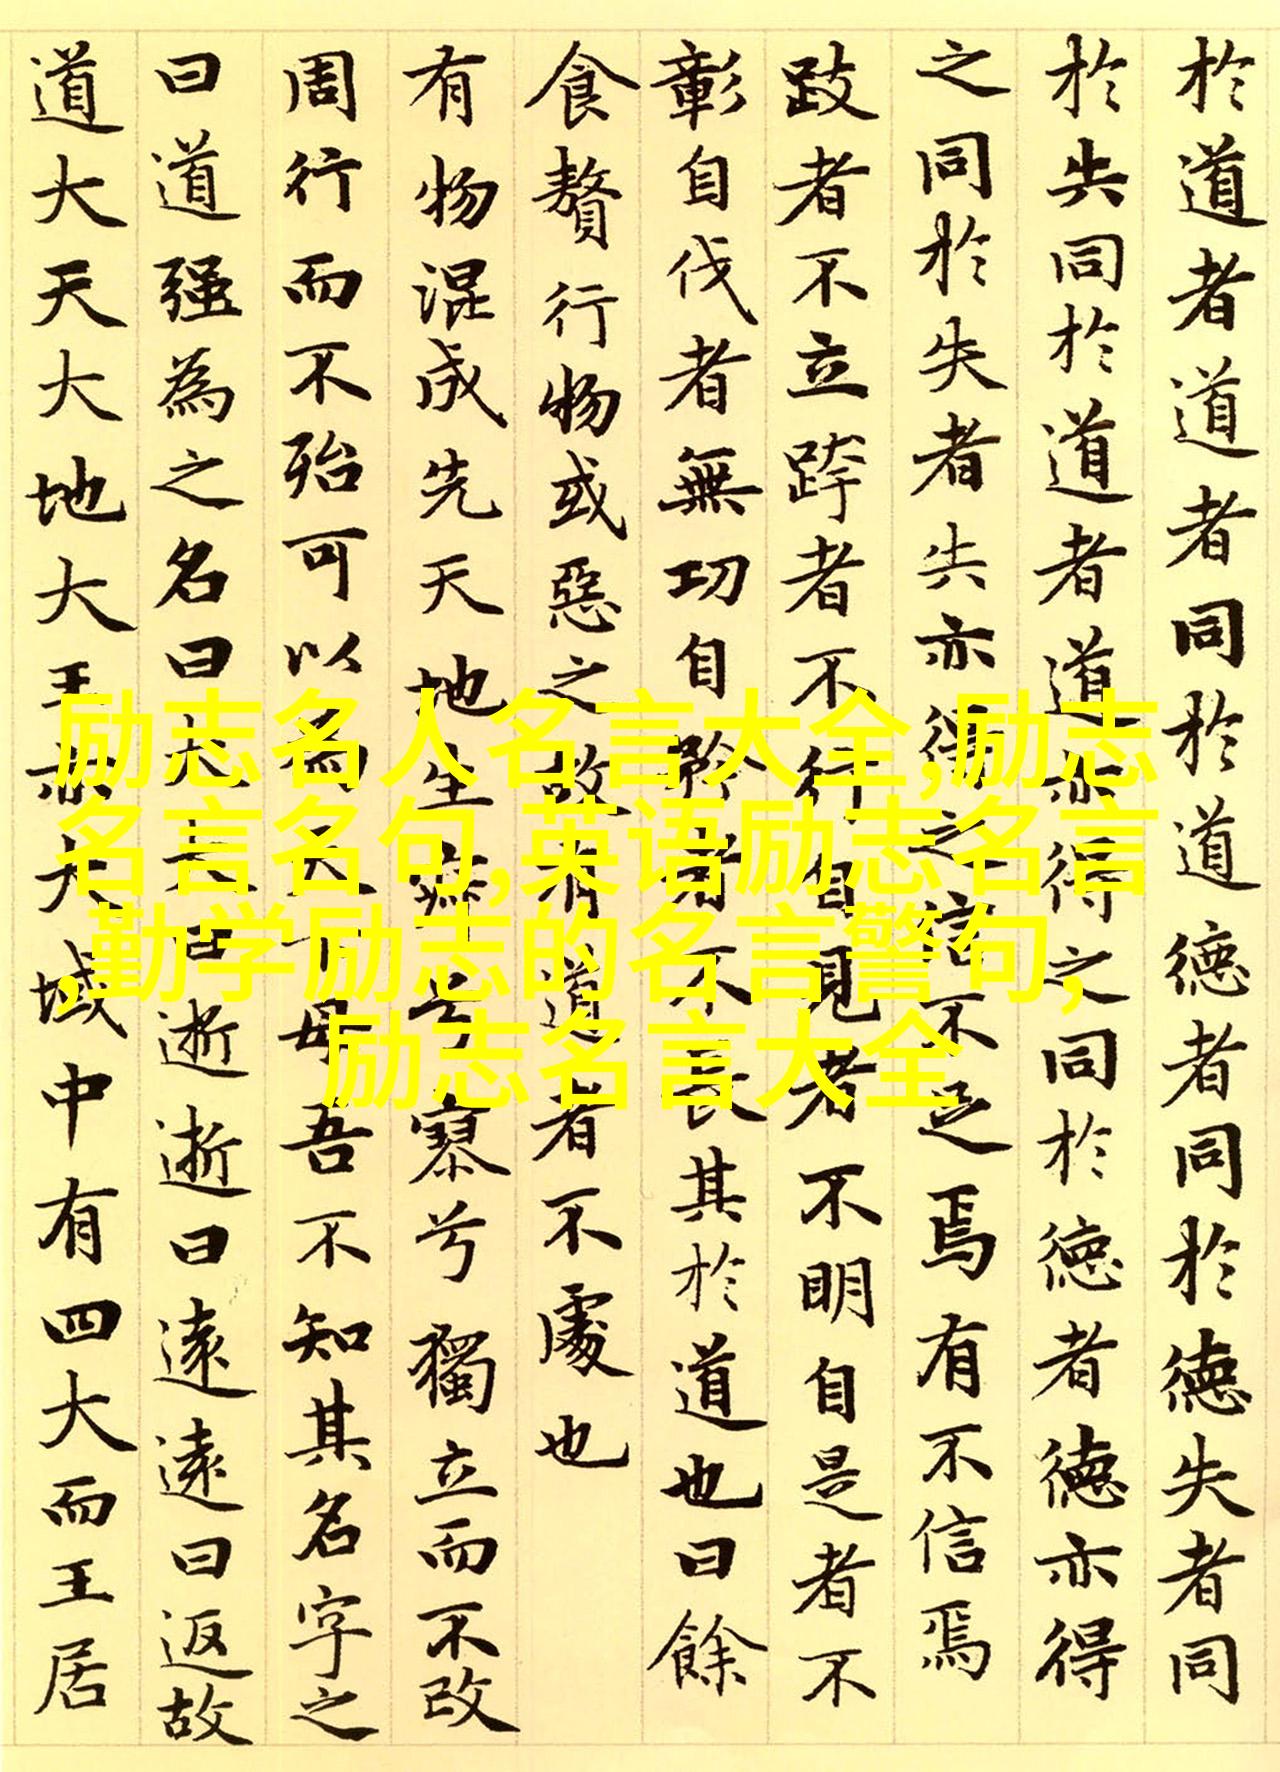 於道者道者同於道德者同於德失者同
於失同於道者道亦得之同於德者德亦得
之同於失者失亦得之信不足焉有不信焉
跂者不立跨者不行自見者不明自是者不
彰自伐者無功自矜者不長其於道也曰餘
食贅行物或惡之故有道者不處也
有物混成先天地生寂兮寥兮獨立而不改
周行而不殆可以為天下母吾不知其名字之
曰道强為之名曰大大曰逝逝曰遠遠曰返故
道大天大地大王亦大域中有四大而王居
励志名人名言大全,励志
名言名句,英语励志名言
,勤学励志的名言警句,
励志名言大全